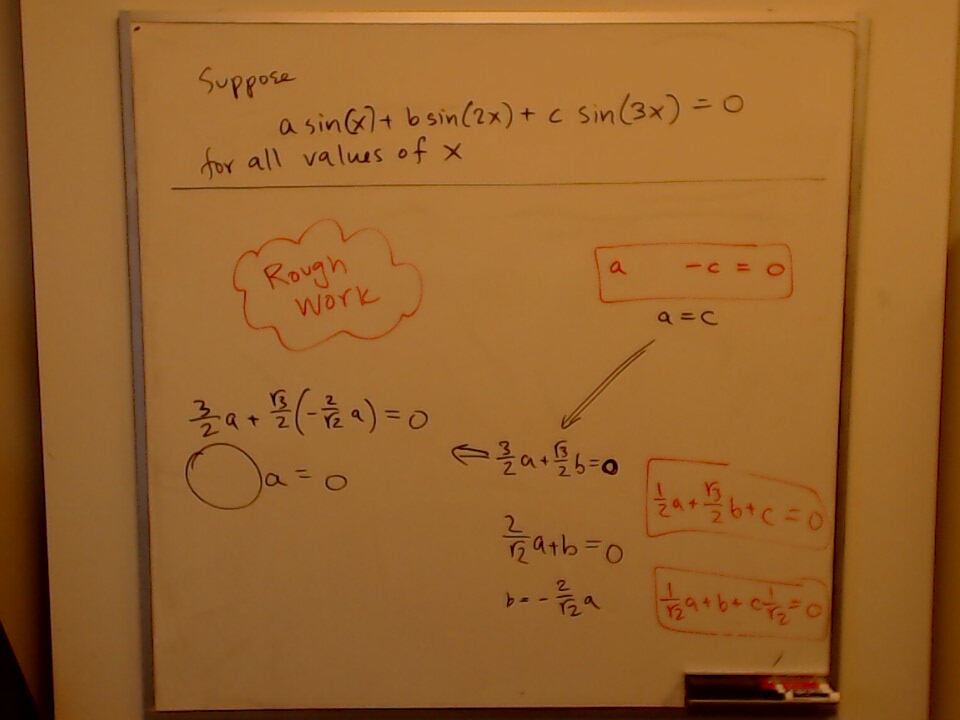 Suppose
a sin(x) + b sin(2x) + c sin(3x) = 0
for all values of x
Rough
Work
a -c = 0
a = c
3/2 a + √3/2 (-2/√2 a) = 0
a = 0
⇐ 3/2 a + √3/2 b = 0
2/√2 a + b = 0
b = - 2/√2 a
1/2 a + √3/2 b + c = 0
1/√2 a + b + c 1/√2 = 0